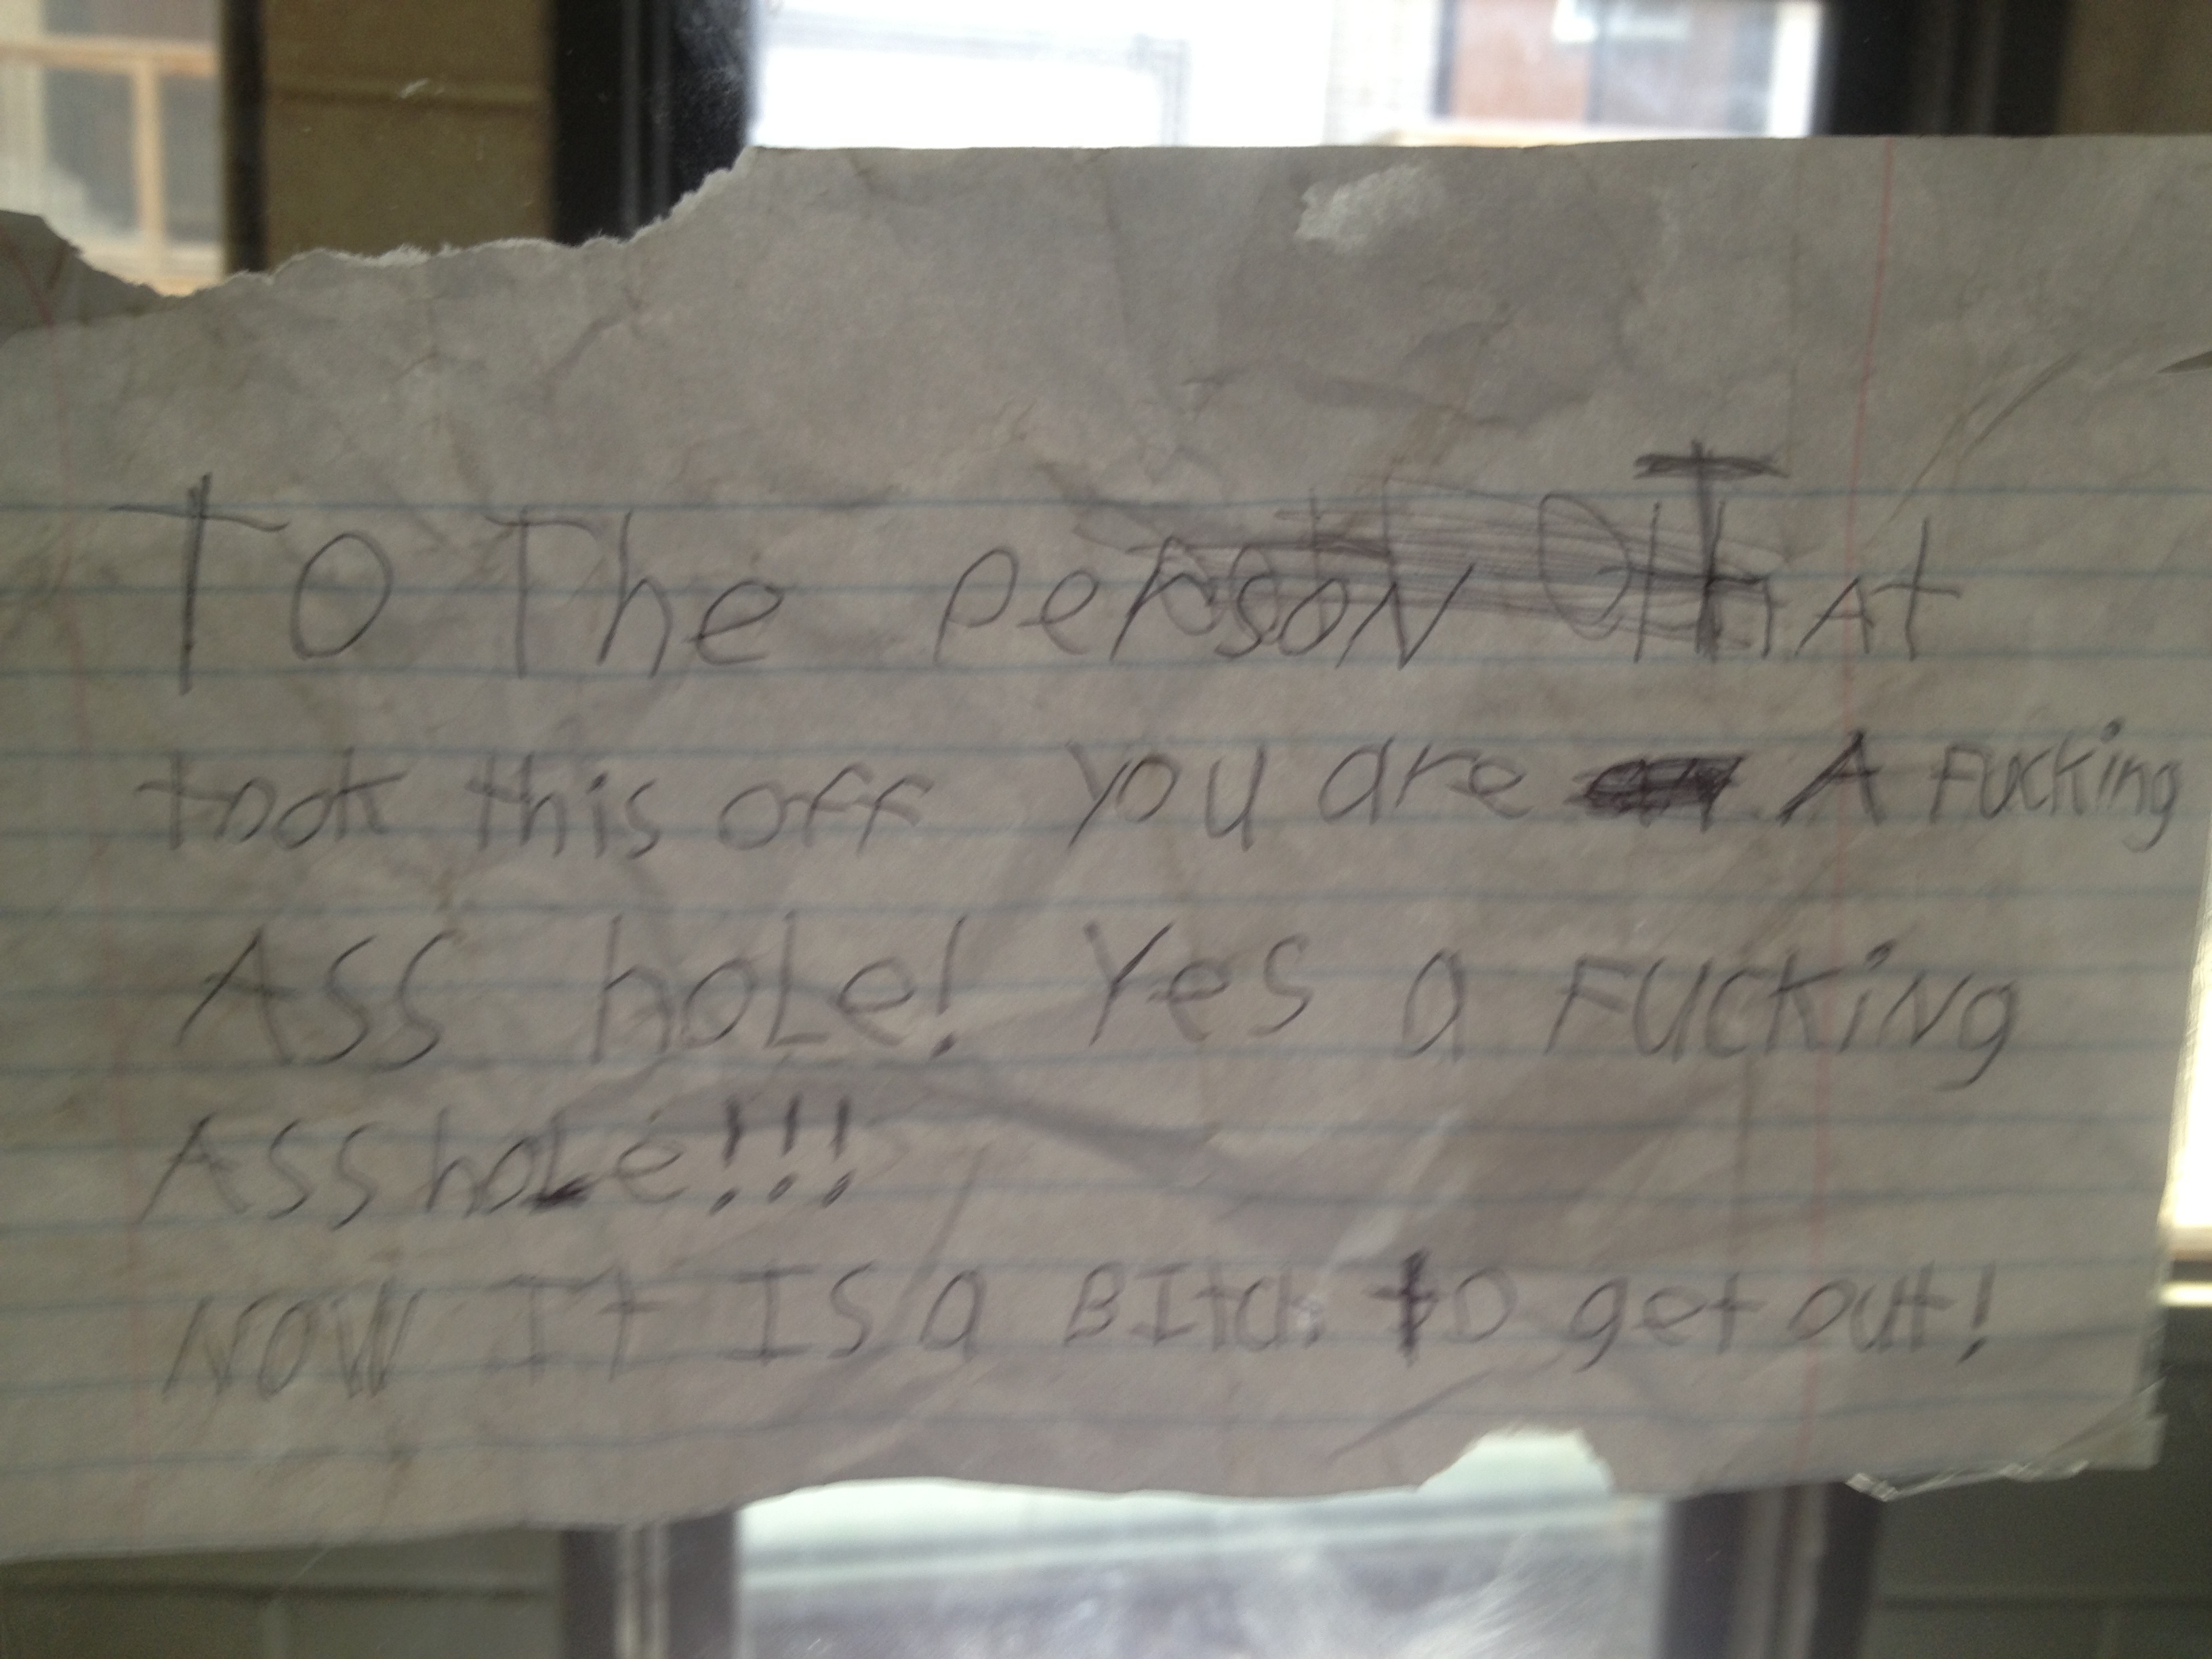 To The person That
took this off you are A Fucking
ASS hoLe! Yes a FUCKiNg
ASShoLe!!!
NOW It IS a BItch to get out!